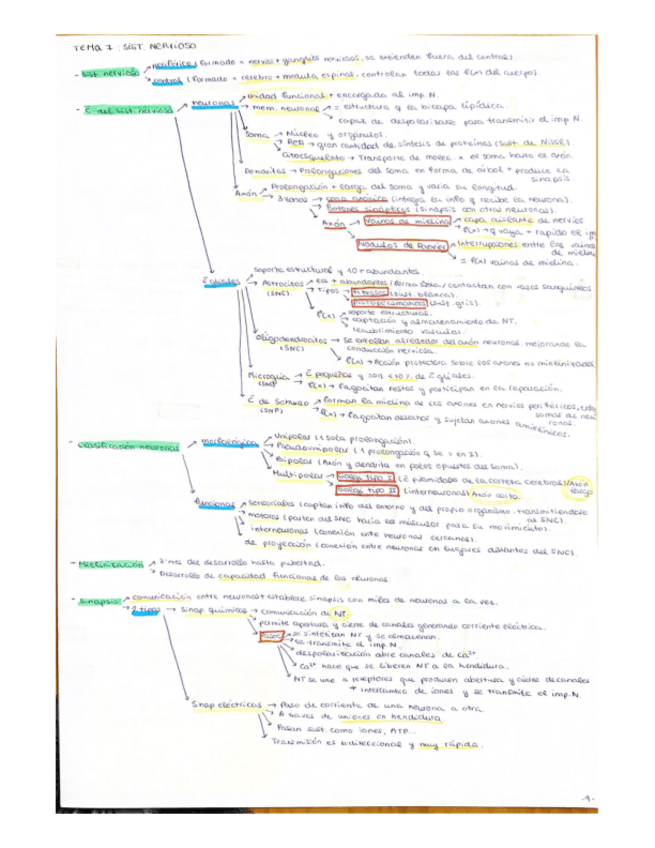 TEMA 7: SIST. NERVIOSO
- Sist. nervioso → periférico (formado x nervios + ganglios nerviosos, se extienden fuera del central).
→ central (formado x cerebro + médula espinal, controlan todas las f(x) del cuerpo).
- C. del sist. nervioso → neuronas → unidad funcional + encargada al imp. N.
→ mem. neuronal → = estructura q la bicapa lipídica.
capaz de despolarizarse para transmitir el imp. N.
Soma → Núcleo y orgánulos.
→ RER → gran cantidad de síntesis de proteínas (sust. de Nissl).
Citoesqueleto → Transporte de molec. x el soma hasta el axón.
Dendritas → Prolongaciones del soma en forma de árbol + produce la
sinapsis.
Axón → Prolongación + larga del soma y varía su longitud.
→ 3 zonas → cono axónico (integra la info q recibe la neurona).
→ Botones sinápticos (sinapsis con otras neuronas).
Axón → Vainas de mielina → capa aislante de nervios
→ f(x) → q vaya + rápido el imp
→ Nódulos de Ranvier → Interrupciones entre las vainas
de mielina
= f(x) vainas de mielina.
C gliales → Soporte estructural y 10 + abundantes.
→ Astrocitos (SNC) → las + abundantes / forma / contactan con vasos sanguíneos
→ Tipos → Fibrosos (sust. blanca).
→ Protoplasmáticos (sust. gris).
→ f(x) → soporte estructural.
→ captación y almacenamiento de NT.
recubrimiento vascular.
Oligodendrocitos (SNC) → Se enrollan alrededor del axón neuronal mejorando la
conducción nerviosa.
f(x) → Acción protectora sobre los axones no mielinizados
Microglía (SNC) → C pequeñas y son <10% de C gliales.
→ f(x) → fagocitan restos y participan en la reparación.
C de Schwann (SNP) → forman la mielina de los axones en nervios periféricos, entre
somas de neu
ronas.
→ f(x) → fagocitan desechos y sujetan axones amielínicos.
- Clasificación neuronas → morfológica → Unipolar (1 sola prolongación).
→ Pseudounipolar (1 prolongación q se ÷ en 2).
→ Bipolar (Axón y dendrita en polos opuestos del soma).
→ Multipolar → Golgi tipo I (C piramidales de la corteza cerebral) Axón
largo
→ Golgi tipo II (interneuronas) Axón corto.
funcional → sensoriales (captan info del entorno y del propio organismo, transmitiéndose
al SNC).
→ motoras (parten del SNC hacia los músculos para su movimiento).
→ Interneuronas (conexión entre neuronas cercanas).
de proyección (conexión entre neuronas en lugares distantes del SNC).
- Mielinización → 3º mes del desarrollo hasta pubertad.
→ Desarrollo de capacidad funcional de las neuronas.
- Sinapsis → comunicación entre neuronas + establece sinapsis con miles de neuronas a la vez.
→ 2 tipos → Sinap químicas → comunicación de NT.
permite apertura y cierre de canales generando corriente eléctrica.
Fases → se sintetizan NT y se almacenan.
→ se transmite el imp. N.
→ despolarización abre canales de Ca²⁺
→ Ca²⁺ hace que se liberen NT a la hendidura.
NT se une a receptores que producen abertura y cierre de canales
+ intercambio de iones y se transmite el imp. N.
Sinap eléctricas → Paso de corriente de una neurona a otra.
→ A través de uniones en hendidura
→ Pasan sust. como iones, ATP...
Transmisión es bidireccional y muy rápida.
-1-